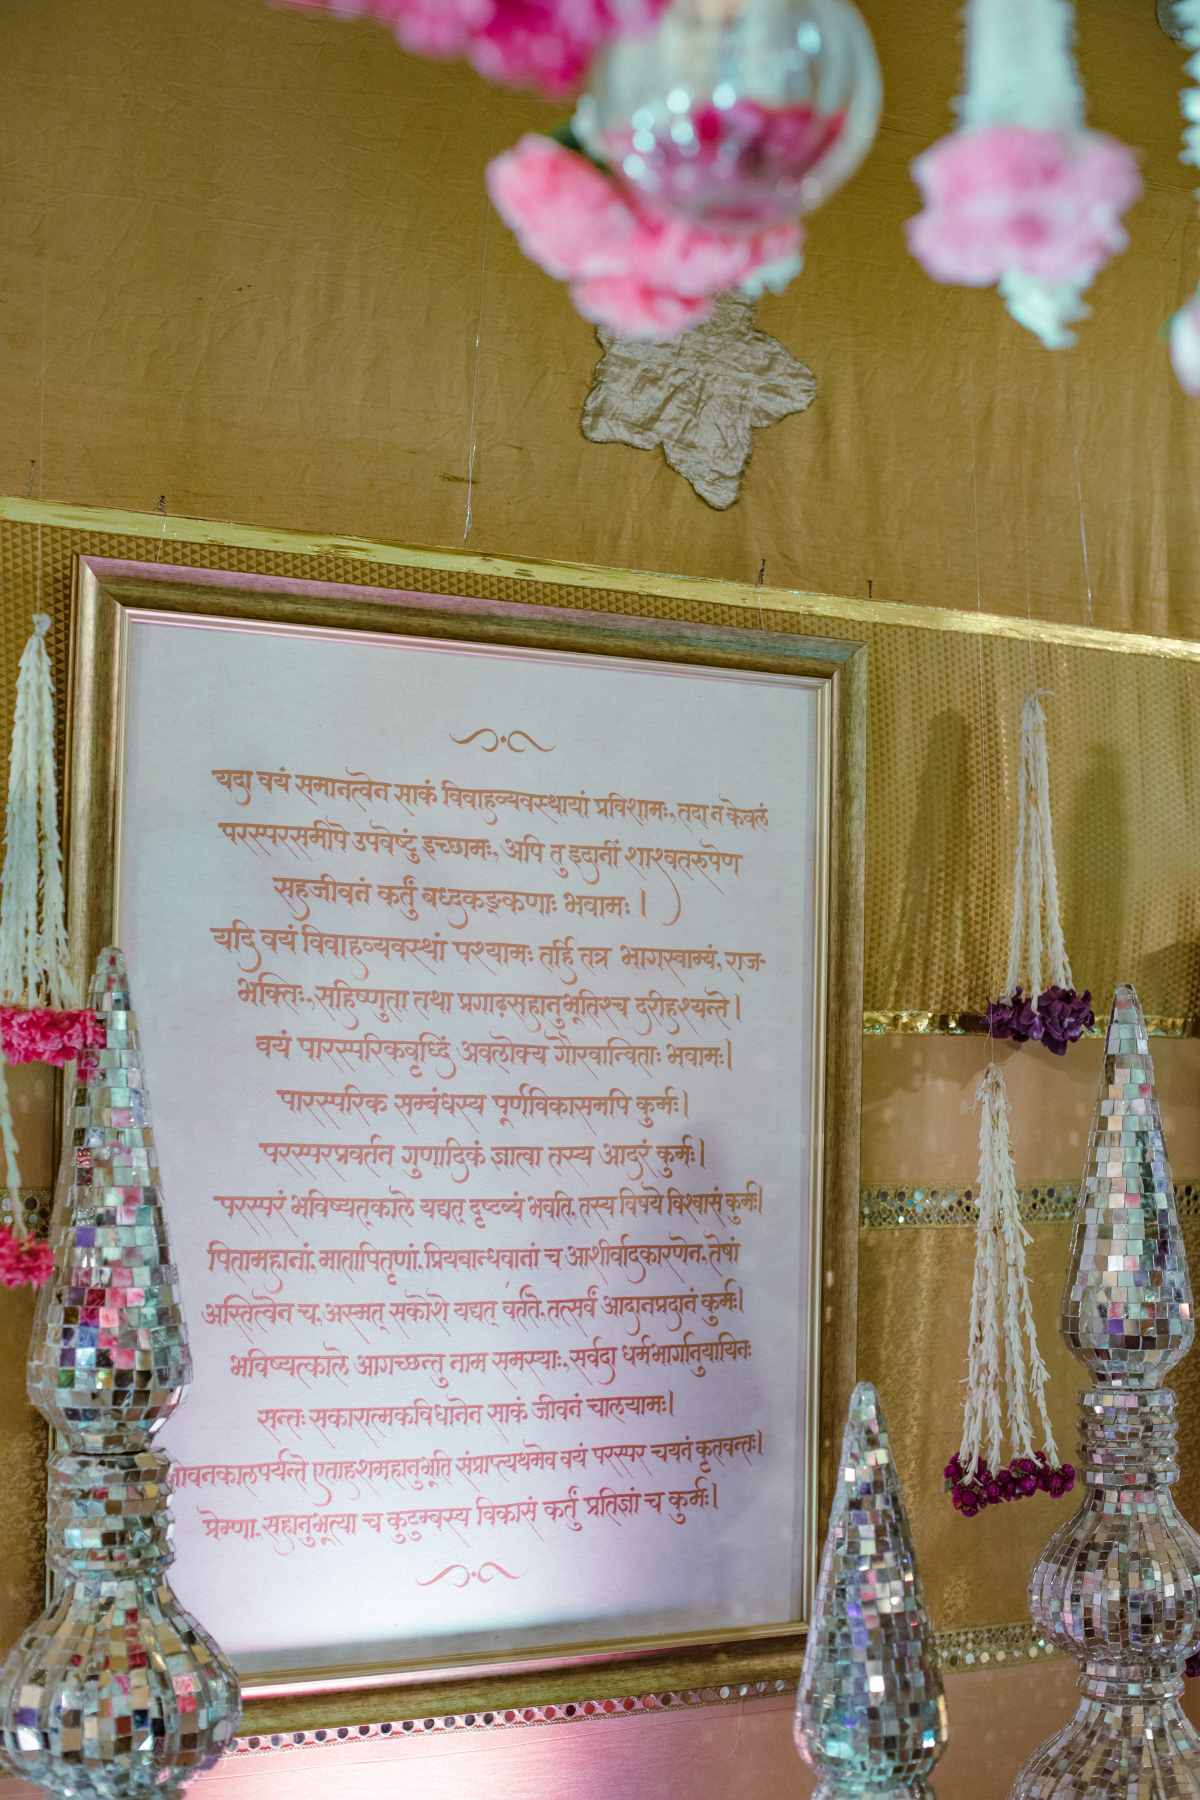 यदा वयं समानत्वेन साकं विवाहव्यवस्थायां प्रविशामः, तदा न केवलं
परस्परसमीपे उपवेष्टुं इच्छामः, अपि तु इदानीं शाश्वतरुपेण
सहजीवनं कर्तुं बध्दकङ्कणाः भवामः ।
यदि वयं विवाहव्यवस्थां पश्यामः तर्हि तत्र भागस्वाम्यं, राज-
भक्तिः, सहिष्णुता तथा प्रगाढ़सहानुभूतिश्च दरीदृश्यन्ते ।
वयं पारस्परिकवृध्दिं अवलोक्य गौरवान्विताः भवामः।
पारस्परिक सम्बंधस्य पूर्णविकासमपि कुर्मः।
परस्परप्रवर्तन गुणादिकं ज्ञात्वा तस्य आदरं कुर्मः।
परस्परं भविष्यत्काले यद्यत् दृष्टव्यं भवति, तस्य विषये विश्वासं कुर्मः।
पितामहानां, मातापितृणां, प्रियबान्धवानां च आशीर्वादकारणेन, तेषां
अस्तित्वेन च, अस्मत् सकोशे यद्यत् वर्तते, तत्सर्वं आदानप्रदानं कुर्मः।
भविष्यत्काले आगच्छन्तु नाम समस्याः, सर्वदा धर्ममार्गानुयायिनः
सन्तः सकारात्मकविधानेन साकं जीवनं चालयामः।
एतादृशमहानुभूति संप्राप्त्यर्थमेव वयं परस्पर चयनं कृतवन्तः।
प्रेम्णा, सहानुभूत्या च कुटुम्बस्य विकासं कर्तुं प्रतिज्ञां च कुर्मः।